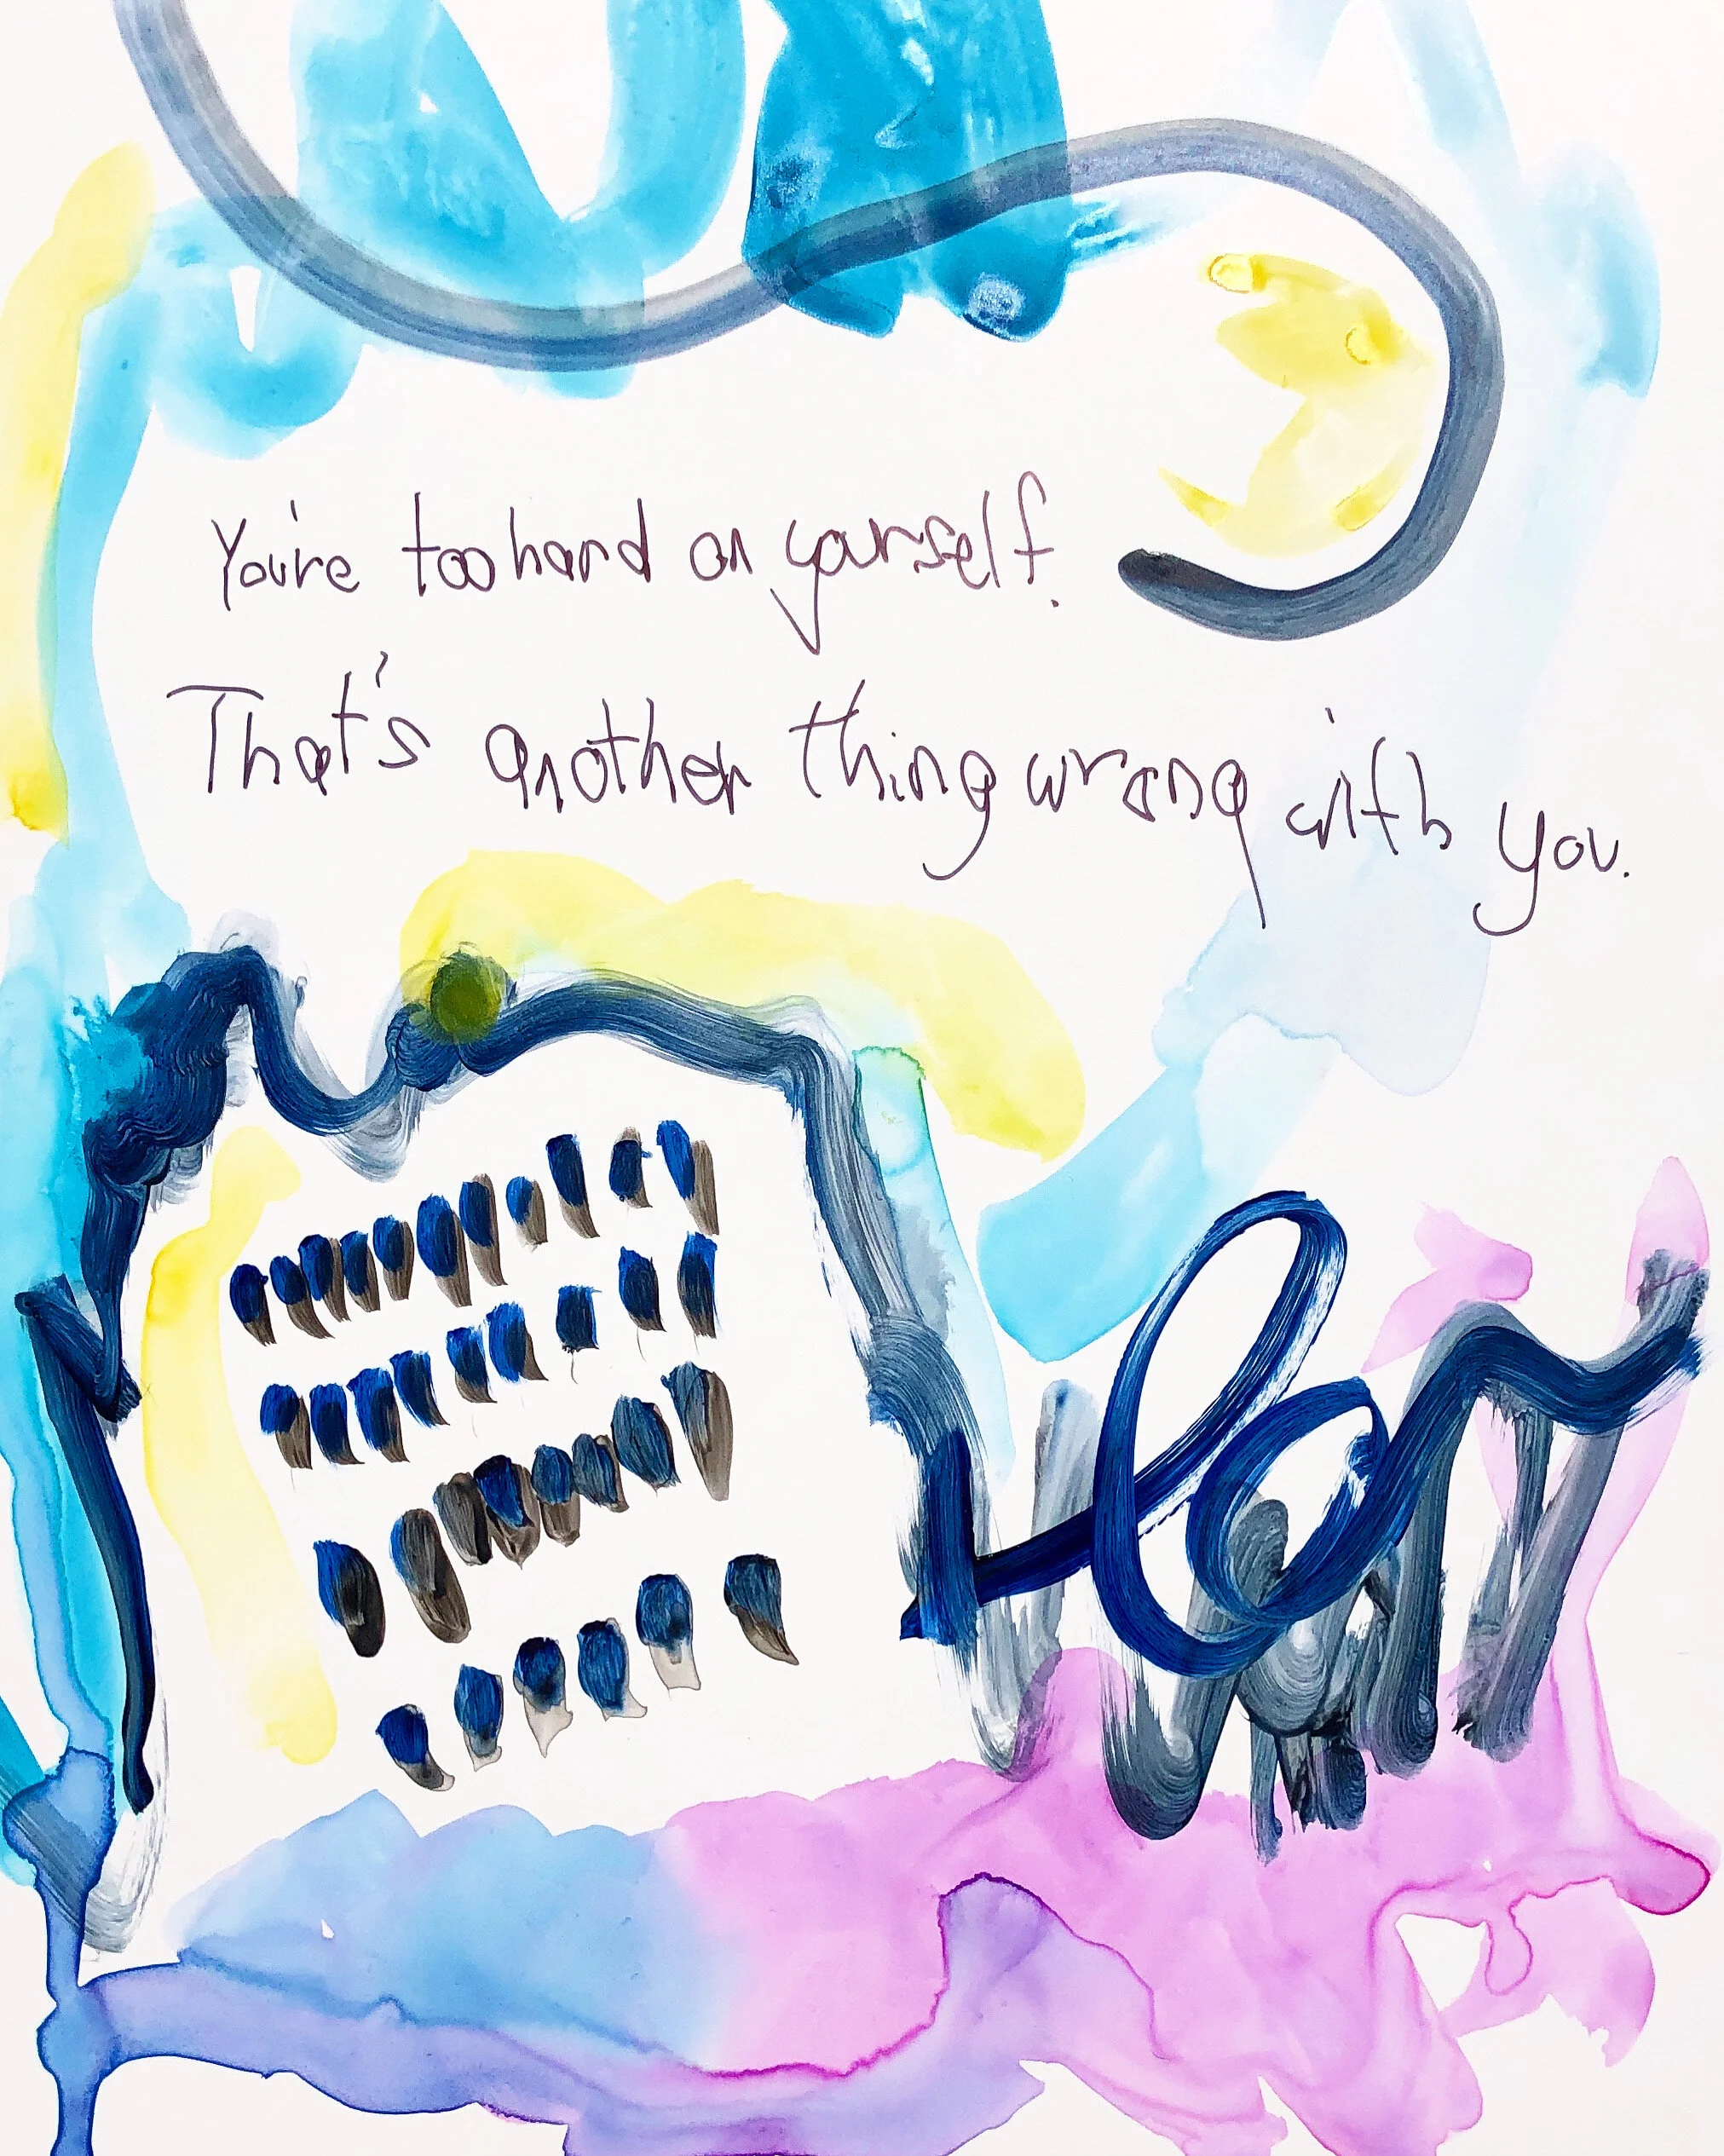 You're too hard on yourself.
That's another thing wrong with you.